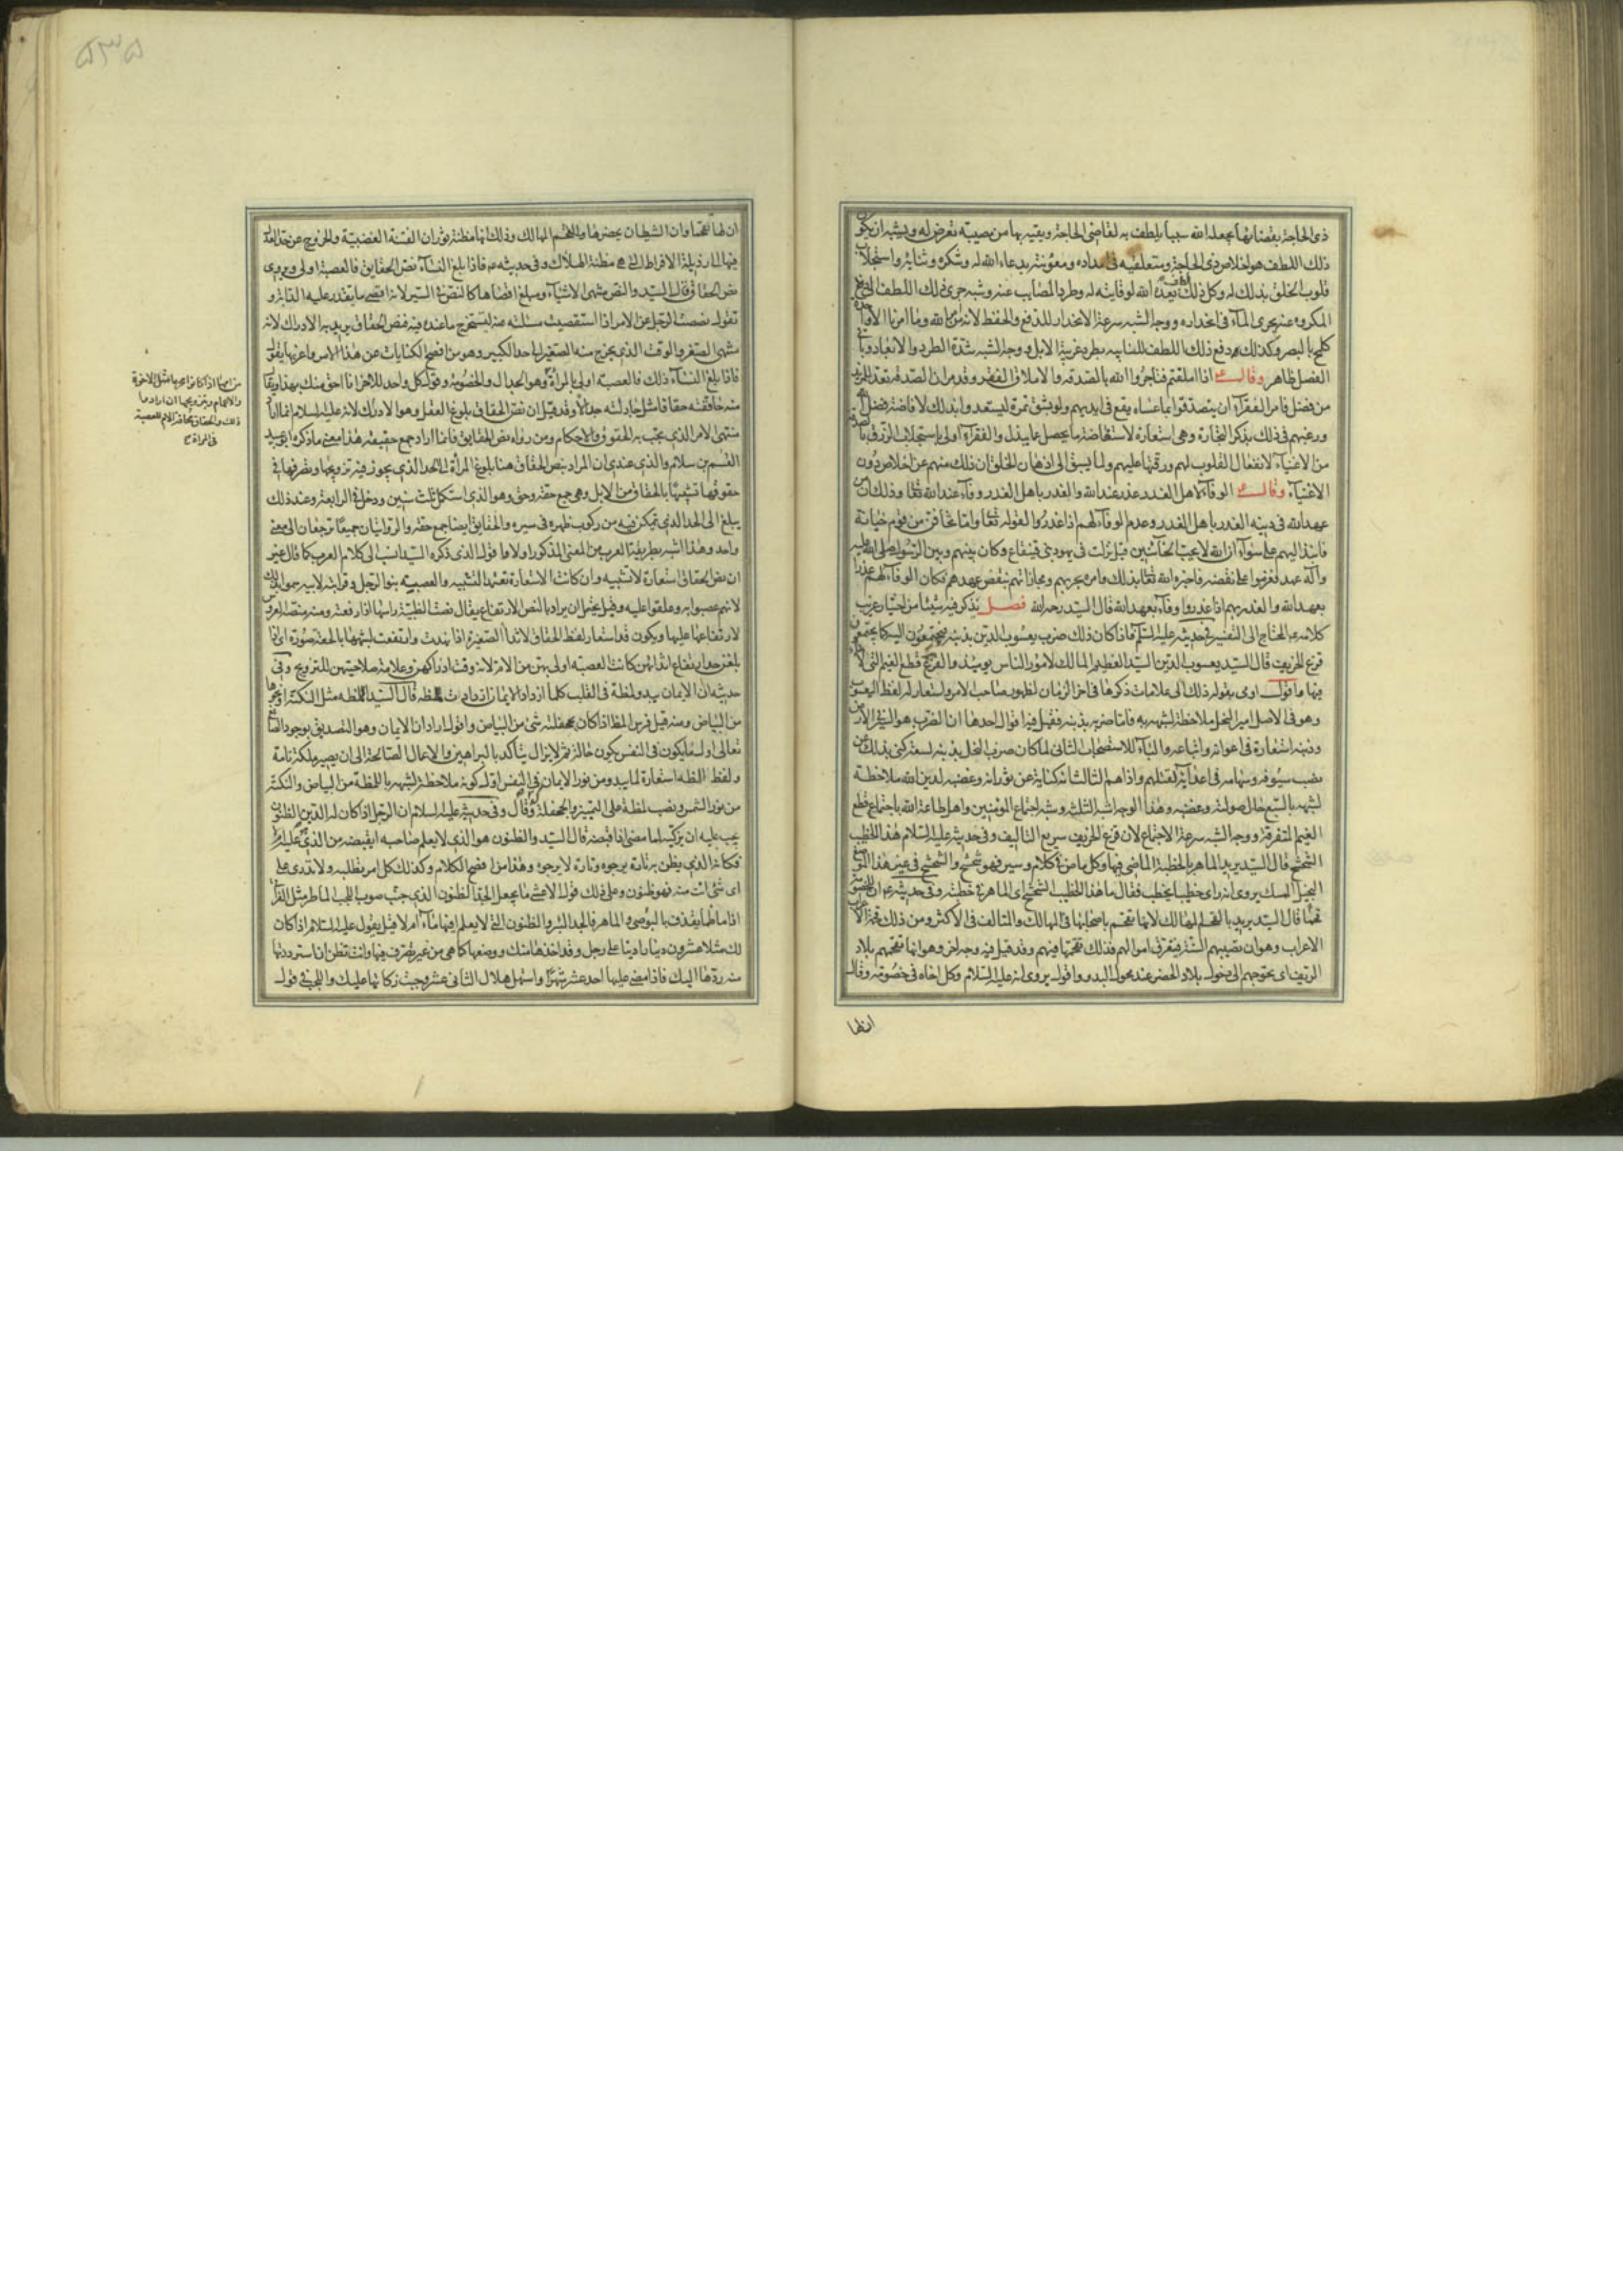 ذى الحاجة بقضائها يجعله الله سببا يلطف به لقاضى الحاجة ويقيه بها من مصيبة تعرض له ويشبه ان يكون
ذلك اللطف هو اخلاص ذى الحاجة ومتعلقيه فى امداده ومعونته بدعاء الله له وشكره وثنائه واستجلاب
قلوب الخلق بذلك له وكل ذلك الله لوقايته له وطرد المصايب عنه وشبه جرى ذلك اللطف الى دفع
المكروه عنه بجرى الماء فى انحداره ووجه الشبه سرعة الانحدار للدفع والحفظ لانه من امر الله وما امرنا الا واحدة
كلمح بالبصر وكذلك دفع ذلك اللطف للنايبه بطرد غريبة الابل ووجه الشبه شدة الطرد والابعاد وباقى
الفصل ظاهر وقال ع اذا املقتم فتاجروا الله بالصدقه والاملاق الفقر وقد مر ان الصدقة تعد للمزيد
من فضل فامر الفقراء ان يتصدقوا بما عساه يقع فى ايديهم ولو بشق تمرة ليستعدوا بذلك لافاضة فضل الله
ورغبهم فى ذلك بذكر التجارة وهى استعارة لاستعاضة ما يحصل عما يبذل والفقراء اولى باستجلاب الرزق بالصدقة
من الاغنياء لانفعال القلوب لهم ورقتها عليهم ولما يسبق الى اذهان الخلق ان ذلك منهم عن اخلاص دون
الاغنياء وقال ع الوفاء لاهل الغدر غدر عند الله والغدر باهل الغدر وفاء عند الله تعا وذلك ان من
عهد الله فى دينه الغدر باهل الغدر وعدم الوفاء لهم اذا غدروا لقوله تعا واما تخافن من قوم خيانة
فانبذ اليهم على سواء ان الله لا يحب الخائنين قيل نزلت فى يهود بنى قينقاع وكان بينهم وبين الرسول صلى الله عليه
وآله عهد فعزموا على نقضه فاخبره الله تعا بذلك وامره بحربهم ومجازاتهم بنقض عهدهم فكان الوفاء لهم غدرا
بعهد الله والغدر بهم اذا غدروا وفاء بعهد الله قال السيد رحمه الله فصل نذكر فيه شيئا من اختيار غريب
كلامه ع المحتاج الى التفسير فى حديثه عليه السلم فاذا كان ذلك ضرب يعسوب الدين بذنبه فيجتمعون اليه كما يجتمع
قزع الخريف قال السيد يعسوب الدين السيد العظيم المالك لامور الناس يومئذ والقزع قطع الغيم التى لا ماء
فيها اقول اومى بقوله ذلك الى علامات ذكرها فى اخر الزمان لظهور صاحب الامر واستعار له لفظ اليعسوب
وهو فى الاصل امير النحل ملاحظة لشبهه به فاما ضربه بذنبه فقيل فيه اقوال احدها ان الضرب هو السير فى الارض
وذنبه استعارة فى اعوانه واتباعه والباء للاستصحاب الثانى لما كان ضرب النحل بذنبه لسعه كنى بذلك عن
نصب سيوفه وسهامه فى اعدائه لقتلهم واذاهم الثالث انه كناية عن ثورانه وغضبه لدين الله ملاحظة
لشبهه بالسبع حال صولته وغضبه وهذا الوجه اشبه الثلثه وشبه اجتماع المؤمنين واهل طاعة الله باجتماع قطع
الغيم المتفرقة ووجه الشبه سرعة الاجتماع لان قزع الخريف سريع التاليف وفى حديثه عليه السلام هذا الخطيب
الشحشح قال السيد يريد الماهر بالخطبة الماضى فيها وكل ماض فى كلام وسير فهو شحشح والشحشح فى غير هذا الموضع
البخيل الممسك يروى انه راى خطيبا يخطب فقال ما هذا الخطيب الشحشح اى الماهر فى خطبته وفى حديثه ع ان للخصومة
قحما قال السيد يريد بالقحم المهالك لانها تقحم باصحابها فى المهالك والمتالف فى الاكثر ومن ذلك قحمة الاعراب
الاعراب وهو ان تصيبهم السنة فيتعرق اموالهم فذلك تقحمها فيهم وقد قيل فيه وجه اخر وهو انها تقحمهم بلاد
الريف اى تحوجهم الى دخول بلاد الحضر عند محول البدو واقول يروى انه عليه السلام وكل اخاه فى خصومة وقال
ان لها
ان لها لقحما وان الشيطان يحضرها والقحم المهالك وذلك انها مظنة ثوران الفتنة الغضبية والخروج عن حد العدل
فيها الى رذيلة الافراط التى هى مظنة الهلاك وفى حديثه ع فاذا بلغ النساء نص الحقايق فالعصبة اولى ويروى
نص الحقاق قال السيد والنص منتهى الاشياء ومبلغ اقصاها كالنص فى السير لانه اقصى ما يقدر عليه الدابة و
تقول نصصت الرجل عن الامر اذا استقصيت مسئلته عنه ليستخرج ما عنده فيه فنص الحقاق يريد به الادراك لانه
منتهى الصغر والوقت الذى يخرج منه الصغير الى حد الكبير وهو من افصح الكنايات عن هذا الامر واغربها يقول
فاذا بلغ النساء ذلك فالعصبة اولى بالمراة وهو الجدال والخصومة وقول كل واحد للاخر انا احق منك بهذا ويقال
منه حاققته حقاقا مثل جادلته جدالا وقد قيل ان نص الحقاق بلوغ العقل وهو الادراك لانه عليه السلام انما اراد
منتهى الامر الذى يجب به الحقوق والاحكام ومن رواه نص الحقايق فانما اراد جمع حقيقه هذا معنى ما ذكره ابو عبيد
القسم بن سلام والذى عندى ان المراد بنص الحقاق هنا بلوغ المرأة الى الحد الذى يجوز فيه تزويجها وتصرفها فى
حقوقها تشبيها بالحقاق من الابل وهى جمع حقه وحق وهو الذى استكمل ثلث سنين ودخل فى الرابعة وعند ذلك
يبلغ الى الحد الذى يتمكن فيه من ركوب ظهره فى سيره والحقايق ايضا جمع حقه والروايتان جميعا ترجعان الى معنى
واحد وهذا اشبه بطريقة العرب من المعنى المذكور اولا واقول الذى ذكره السيد انسب الى كلام العرب كما قال غير
ان نص الحقاق استعارة لا تشبيه وان كانت الاستعارة تعتمد التشبيه والعصبة بنو الرجل وقرابته لابيه سموا بذلك
لانهم عصبوا به وعلقوا عليه وقيل يحتمل ان يراد بالنص الارتفاع يقال نصت الظبية راسها اذا رفعته ومنه منصة العروس
لارتفاعها عليها ويكون قد استعار لفظ الحقاق لاثداء الصغيرة اذا نهدت وارتفعت لشبهها بالحقه صورة اى اذا
بلغن حد ارتفاع اثدائهن كانت العصبة اولى بهن من الام لانه وقت ادراكهن وعلامة صلاحيتهن للتزويج وفى
حديثه ان الايمان يبدو لمظة فى القلب كلما ازداد الايمان ازدادت اللمظه قال السيد اللمظه مثل النكتة او نحوها
من البياض ومنه قيل فرس المظ اذا كان بجحفلته شئ من البياض واقول اراد ان الايمان وهو التصديق بوجود الصانع
تعالى اول ما يكون فى النفس يكون حالة ثم لا يزال يتأكد بالبراهين والاعمال الصالحة الى ان يصير ملكة تامة
ولفظ اللمظه استعارة لما يبدو من نور الايمان فى النفس اول كونه ملاحظة لشبهه باللمظة من البياض والنكتة
من نور الشمس ونصب لمظة على التمييز وقال وفى حديثه عليه السلام ان الرجل اذا كان له الدين الظنون
يجب عليه ان يزكيه لما مضى اذا قبضه قال السيد والظنون هو الذى لا يعلم صاحبه ايقبضه من الذى عليه ام لا
فكانه الذى يظن به تارة يرجوه وتارة لا يرجوه وهذا من افصح الكلام وكذلك كل امر تطلبه ولا تدرى على
اى شئ انت منه فهو ظنون وعلى ذلك قول الاعشى ما يجعل الجد الظنون الذى جنب صوب اللجب الماطر مثل الفراتى
اذا ما طما يقذف بالبوصى والماهر فالجد البئر والظنون التى لا يعلم افيها ماء ام لا قيل يقول عليه السلام اذا كان
لك مثلا عشرون دينارا دينا على رجل وقد اخذها منك ووضعها كما هى من غير تصرف فيها وانت تظن ان استرددتها
منه ردها اليك فاذا مضى عليها احد عشر شهرا واستهل هلال الثانى عشر وجبت زكاتها عليك واللجب فى قول